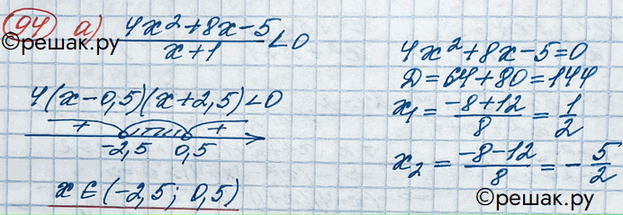 94 а) (4x²+8x-5)/(x+1) <0
©решак.ру
4(x-0,5)(x+2,5)<0
+ - +
-2,5 0,5
x∈(-2,5; 0,5)
4x²+8x-5=0
D=64+80=144
x₁=(-8+12)/8=1/2
x₂=(-8-12)/8=-5/2
©решак.ру